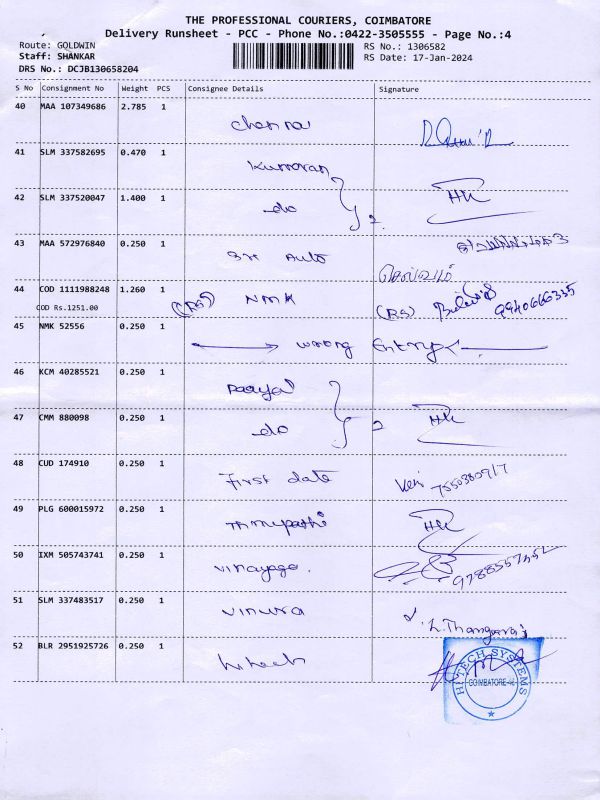 THE PROFESSIONAL COURIERS, COIMBATORE
Delivery Runsheet - PCC - Phone No.:0422-3505555 - Page No.:4
Route: GOLDWIN RS No.: 1306582
Staff: SHANKAR RS Date: 17-Jan-2024
DRS No.: DCJB130658204
S No Consignment No Weight PCS Consignee Details Signature
40 MAA 107349686 2.785 1
Chennai
41 SLM 337582695 0.470 1
Kumaran
42 SLM 337520047 1.400 1
do 2
43 MAA 572976840 0.250 1
SM Auto
செல்வம்
44 COD 1111988248 1.260 1
COD Rs.1251.00 (RS) NMK (RS) 9940666335
45 NMK 52556 0.250 1
wrong Entry
46 KCM 40285521 0.250 1
47 CMM 880098 0.250 1
do 2
48 CUD 174910 0.250 1
First date 7550380917
49 PLG 600015972 0.250 1
Thirupathi
50 IXM 505743741 0.250 1
Vinayaga. 9788557552
51 SLM 337483517 0.250 1
Vinura L.Thangaraj
52 BLR 2951925726 0.250 1
hitech
HITECH SYSTEMS
COIMBATORE-14